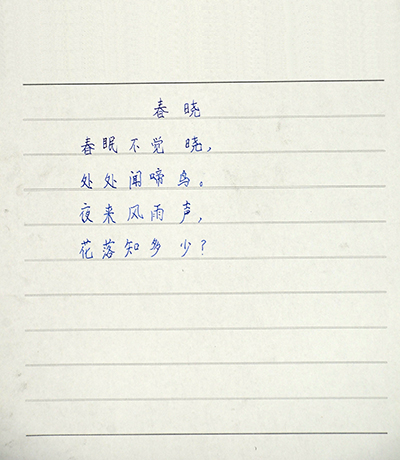 春晓
春眠不觉晓,
处处闻啼鸟。
夜来风雨声,
花落知多少?